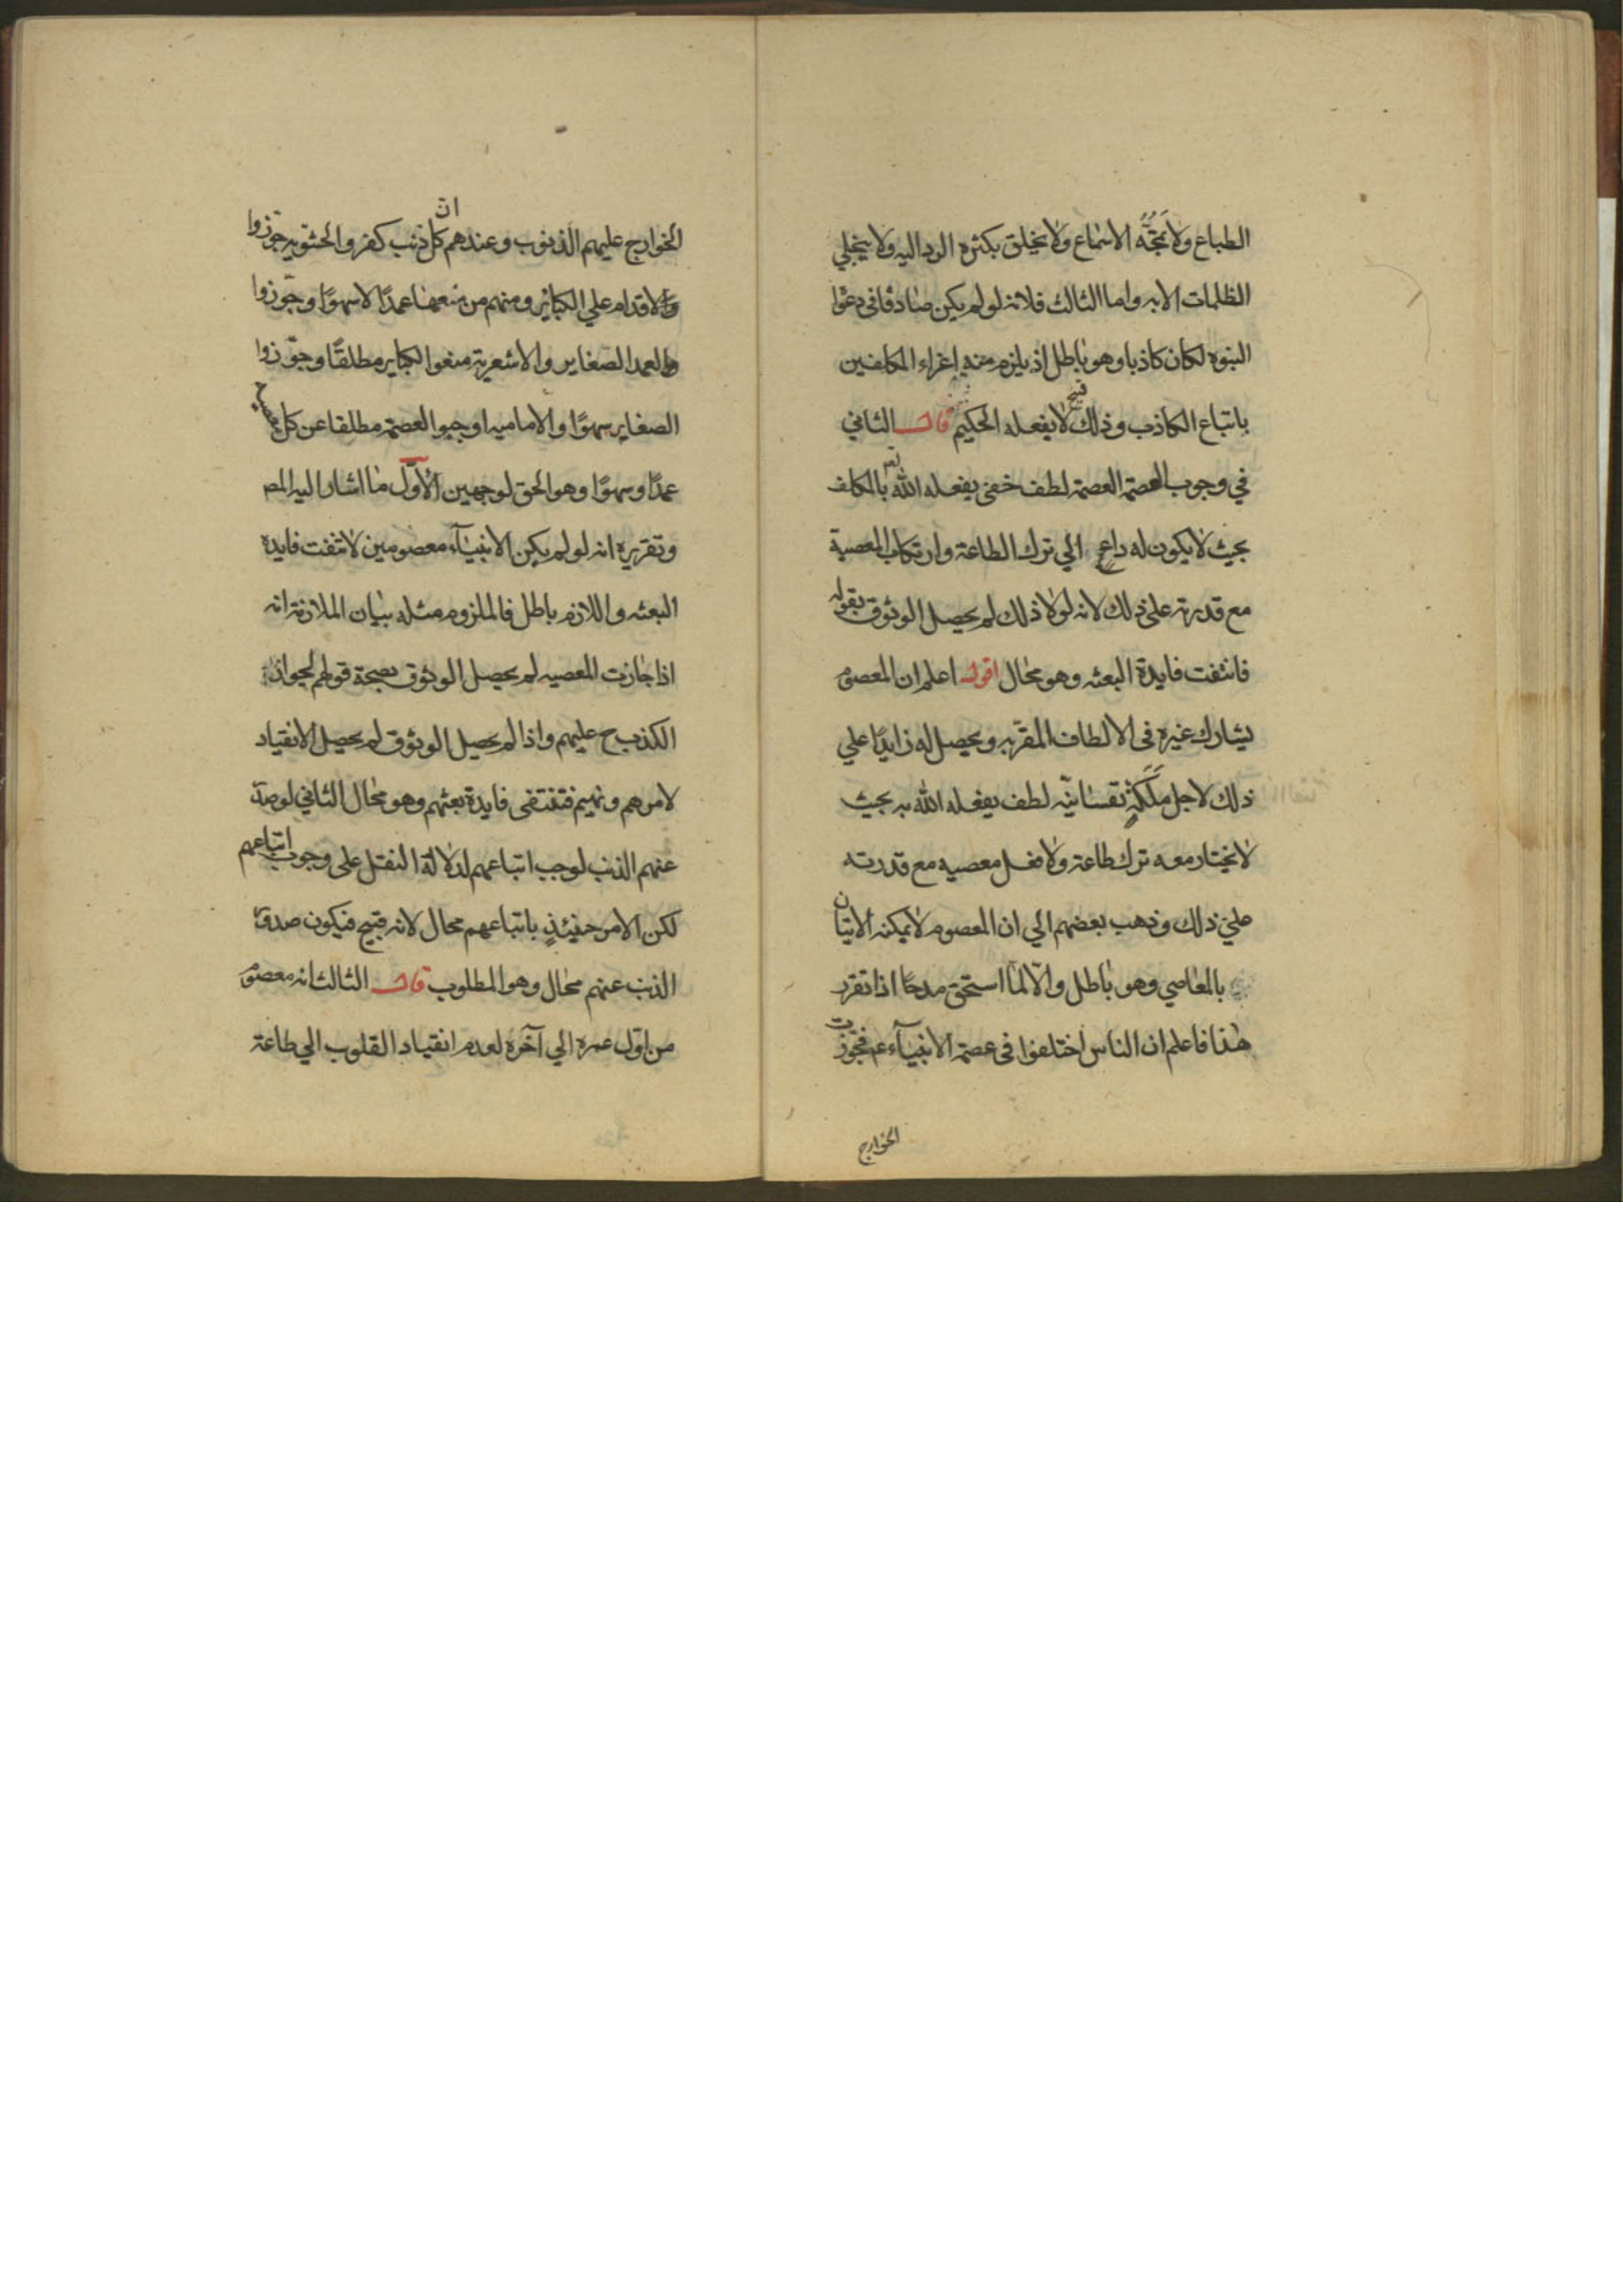 الطباع ولا تمجّه الاسماع ولا يخلق بكثرة الرد اليه ولا ينجلي
الظلمات الا به واما الثالث فلانه لو لم يكن صادقا في دعوا
النبوه لكان كاذبا وهو باطل اذ يلزم منه اغراء المكلفين
باتباع الكاذب وذلك قبيح لا يفعله الحكيم قال الثاني
في وجوب العصمة العصمة لطف خفي يفعله الله تع بالمكلف
بحيث لا يكون له داعٍ الي ترك الطاعة وارتكاب المعصية
مع قدرته على ذلك لانه لولا ذلك لم يحصل الوثوق بقوله
فانتفت فايدة البعثه وهو محال اقول اعلم ان المعصوم
يشارك غيره في الالطاف المقربه ويحصل له زايدًا علي
ذلك لاجل مَلَكَةٍ نفسانيّه لطف يفعله الله به بحيث
لا يختار معه ترك طاعة ولا فعل معصيه مع قدرته
علي ذلك وذهب بعضهم الي ان المعصوم لا يمكنه الاتيان
بالمعاصي وهو باطل والّا لما استحق مدحًا اذا تقرر
هذا فاعلم ان الناس اختلفوا في عصمة الانبيآء عم فجوّزت
الخوارج
الخوارج عليهم الذنوب وعندهم ان كل ذنب كفر والحشويه جوّزوا
الاقدام علي الكبائر ومنهم من منعها عمدًا لا سهوًا وجوّزوا
العمد الصغاير والاشعرية منعوا الكباير مطلقًا وجوّزوا
الصغاير سهوًا والاماميه اوجبوا العصمة مطلقا عن كل معصية
عمدًا وسهوًا وهو الحق لوجهين الاوّل ما اشار اليه المص
وتقريره انه لو لم يكن الانبيآء معصومين لانتفت فايدة
البعثه واللازم باطل فالملزوم مثله بيان الملازمة انه
اذا جازت المعصيه لم يحصل الوثوق بصحة قولهم لجواز
الكذب ح عليهم واذا لم يحصل الوثوق لم يحصل الانقياد
لامرهم ونهيهم فتنتفي فايدة بعثهم وهو محال الثاني لو صدر
عنهم الذنب لوجب اتباعهم لدلالة النقل على وجوب اتباعهم
لكن الامر حينئذٍ باتباعهم محال لانه قبيح فيكون صدور
الذنب عنهم محال وهو المطلوب قال الثالث انه معصوم
من اوّل عمره الي آخره لعدم انقياد القلوب الي طاعة